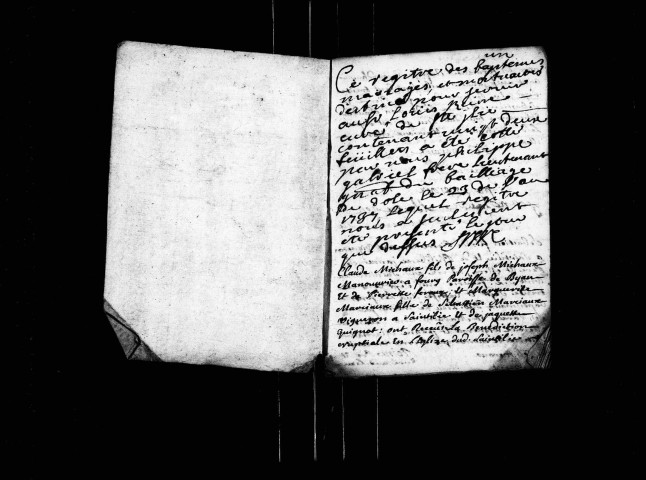 un
Ce registre des baptemes
mariages, et mortuaires
destiné pour servir
au Sr Louis
curé de St
contenant vingt deux
feüillets a été cotté
par nous philippe
gabriel lieutenant
gnal du bailliage
de dole le 23 de
1787 lequel registre
nous a judiciairement
été présenté le jour
que dessus
Claude Michaux fils de joseph Michaux
Manouvrier a fourg Parroisse de Byan
et de Pierrette et Marguerite
Marciaux fille de Sebastien Marciaux
vigneron a Saintilie et de jaquette
guignot; ont Receus la Benediction
nuptiale En Leglize dud Saintilie